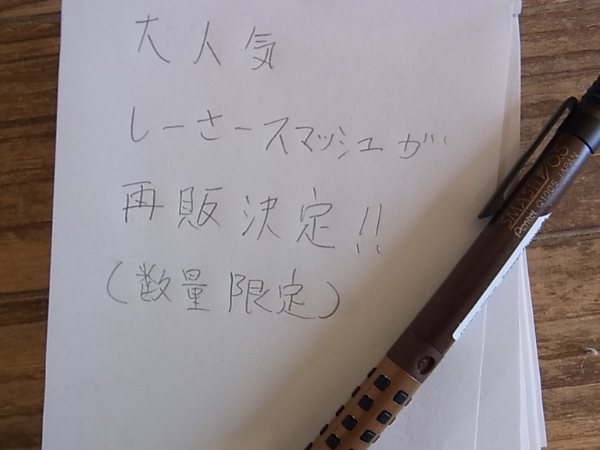 大人気
しーさースマッシュが
再販決定!!
(数量限定)
SMASH 0.5
Pentel Q1005 JAPAN